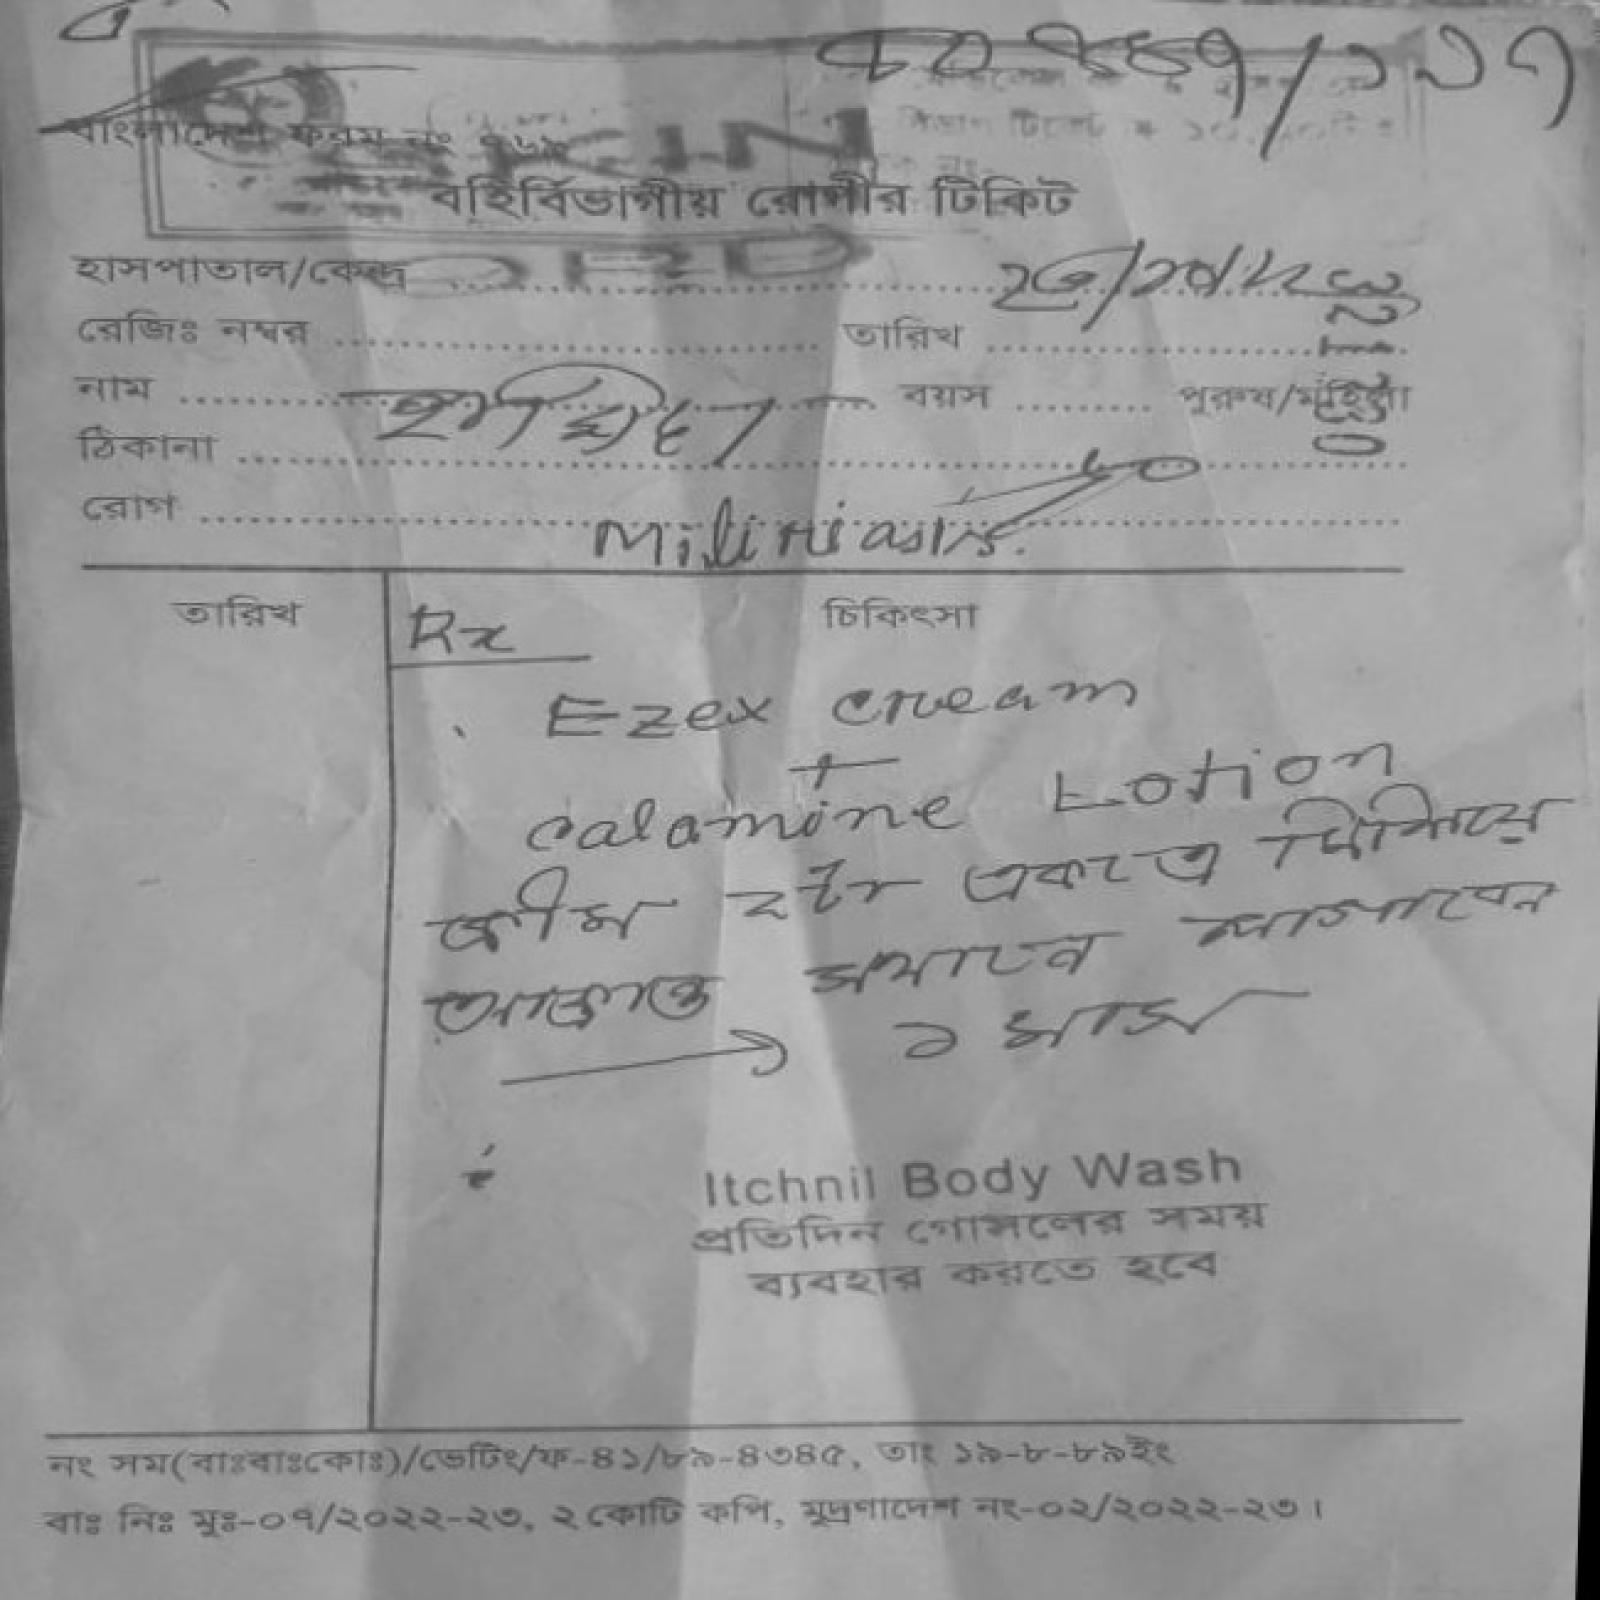 বাংলাদেশ ফরম নং ৭৬৯
SKIN
বহির্বিভাগীয় রোগীর টিকিট
হাসপাতাল/কেন্দ্র
রেজিঃ নম্বর তারিখ
নাম বয়স পুরুষ/মহিলা
ঠিকানা
রোগ Miliriasis.
তারিখ Rx চিকিৎসা
Ezex cream
+
calamine Lotion
ক্রীম ২টা একত্রে মিশিয়ে
আক্রান্ত স্থানে লাগাবেন
→ ১ মাস
Itchnil Body Wash
প্রতিদিন গোসলের সময়
ব্যবহার করতে হবে
নং সম(বাঃবাঃকোঃ)/ভেটিং/ফ-৪১/৮৯-৪৩৪৫, তাং ১৯-৮-৮৯ইং
বাঃ নিঃ মুঃ-০৭/২০২২-২৩, ২ কোটি কপি, মুদ্রণাদেশ নং-০২/২০২২-২৩।